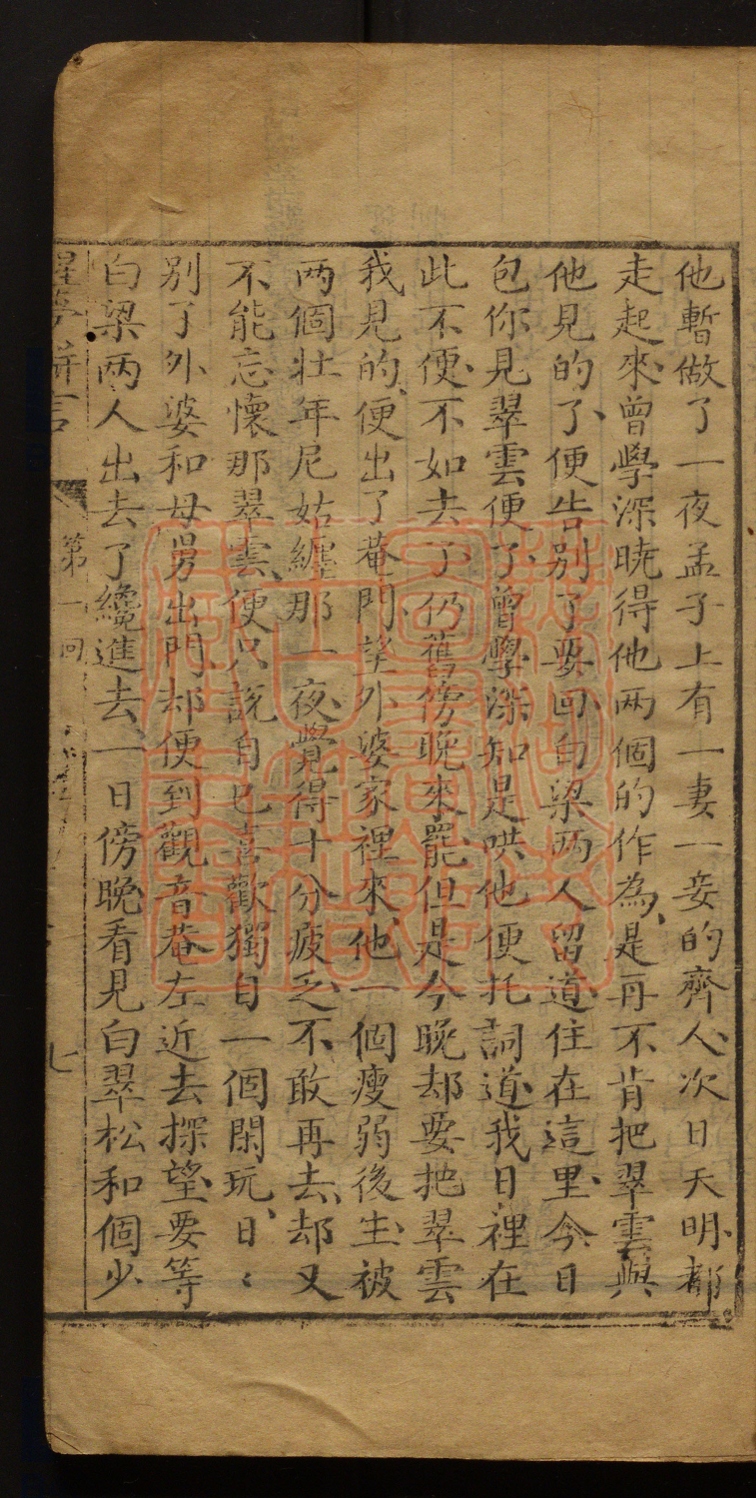 他暫做了一夜孟子上有一妻一妾的齊人、次日天明、都
走起來、曾學深曉得他兩個的作為、是再不肯把翠雲與
他見的了、便告别了要回、白梁两人留道、住在這里、今日
包你見翠雲便了、曾學深知是哄他、便托詞道、我日裡在
此不便、不如去了、仍舊傍晚來罷、但是今晚却要把翠雲
我見的、便出了菴門、望外婆家裡來、他一個瘦弱後生、被
两個壯年尼姑纏那一夜、覺得十分疲乏、不敢再去、却又
不能忘懷那翠雲、便只說自己喜歡獨自一個閑玩、日〻
别了外婆和母舅出門、却便到觀音菴左近去探望、要等
白梁两人出去了、纔進去、一日傍晚看見白翠松和個少
醒夢駢言 第一回 七